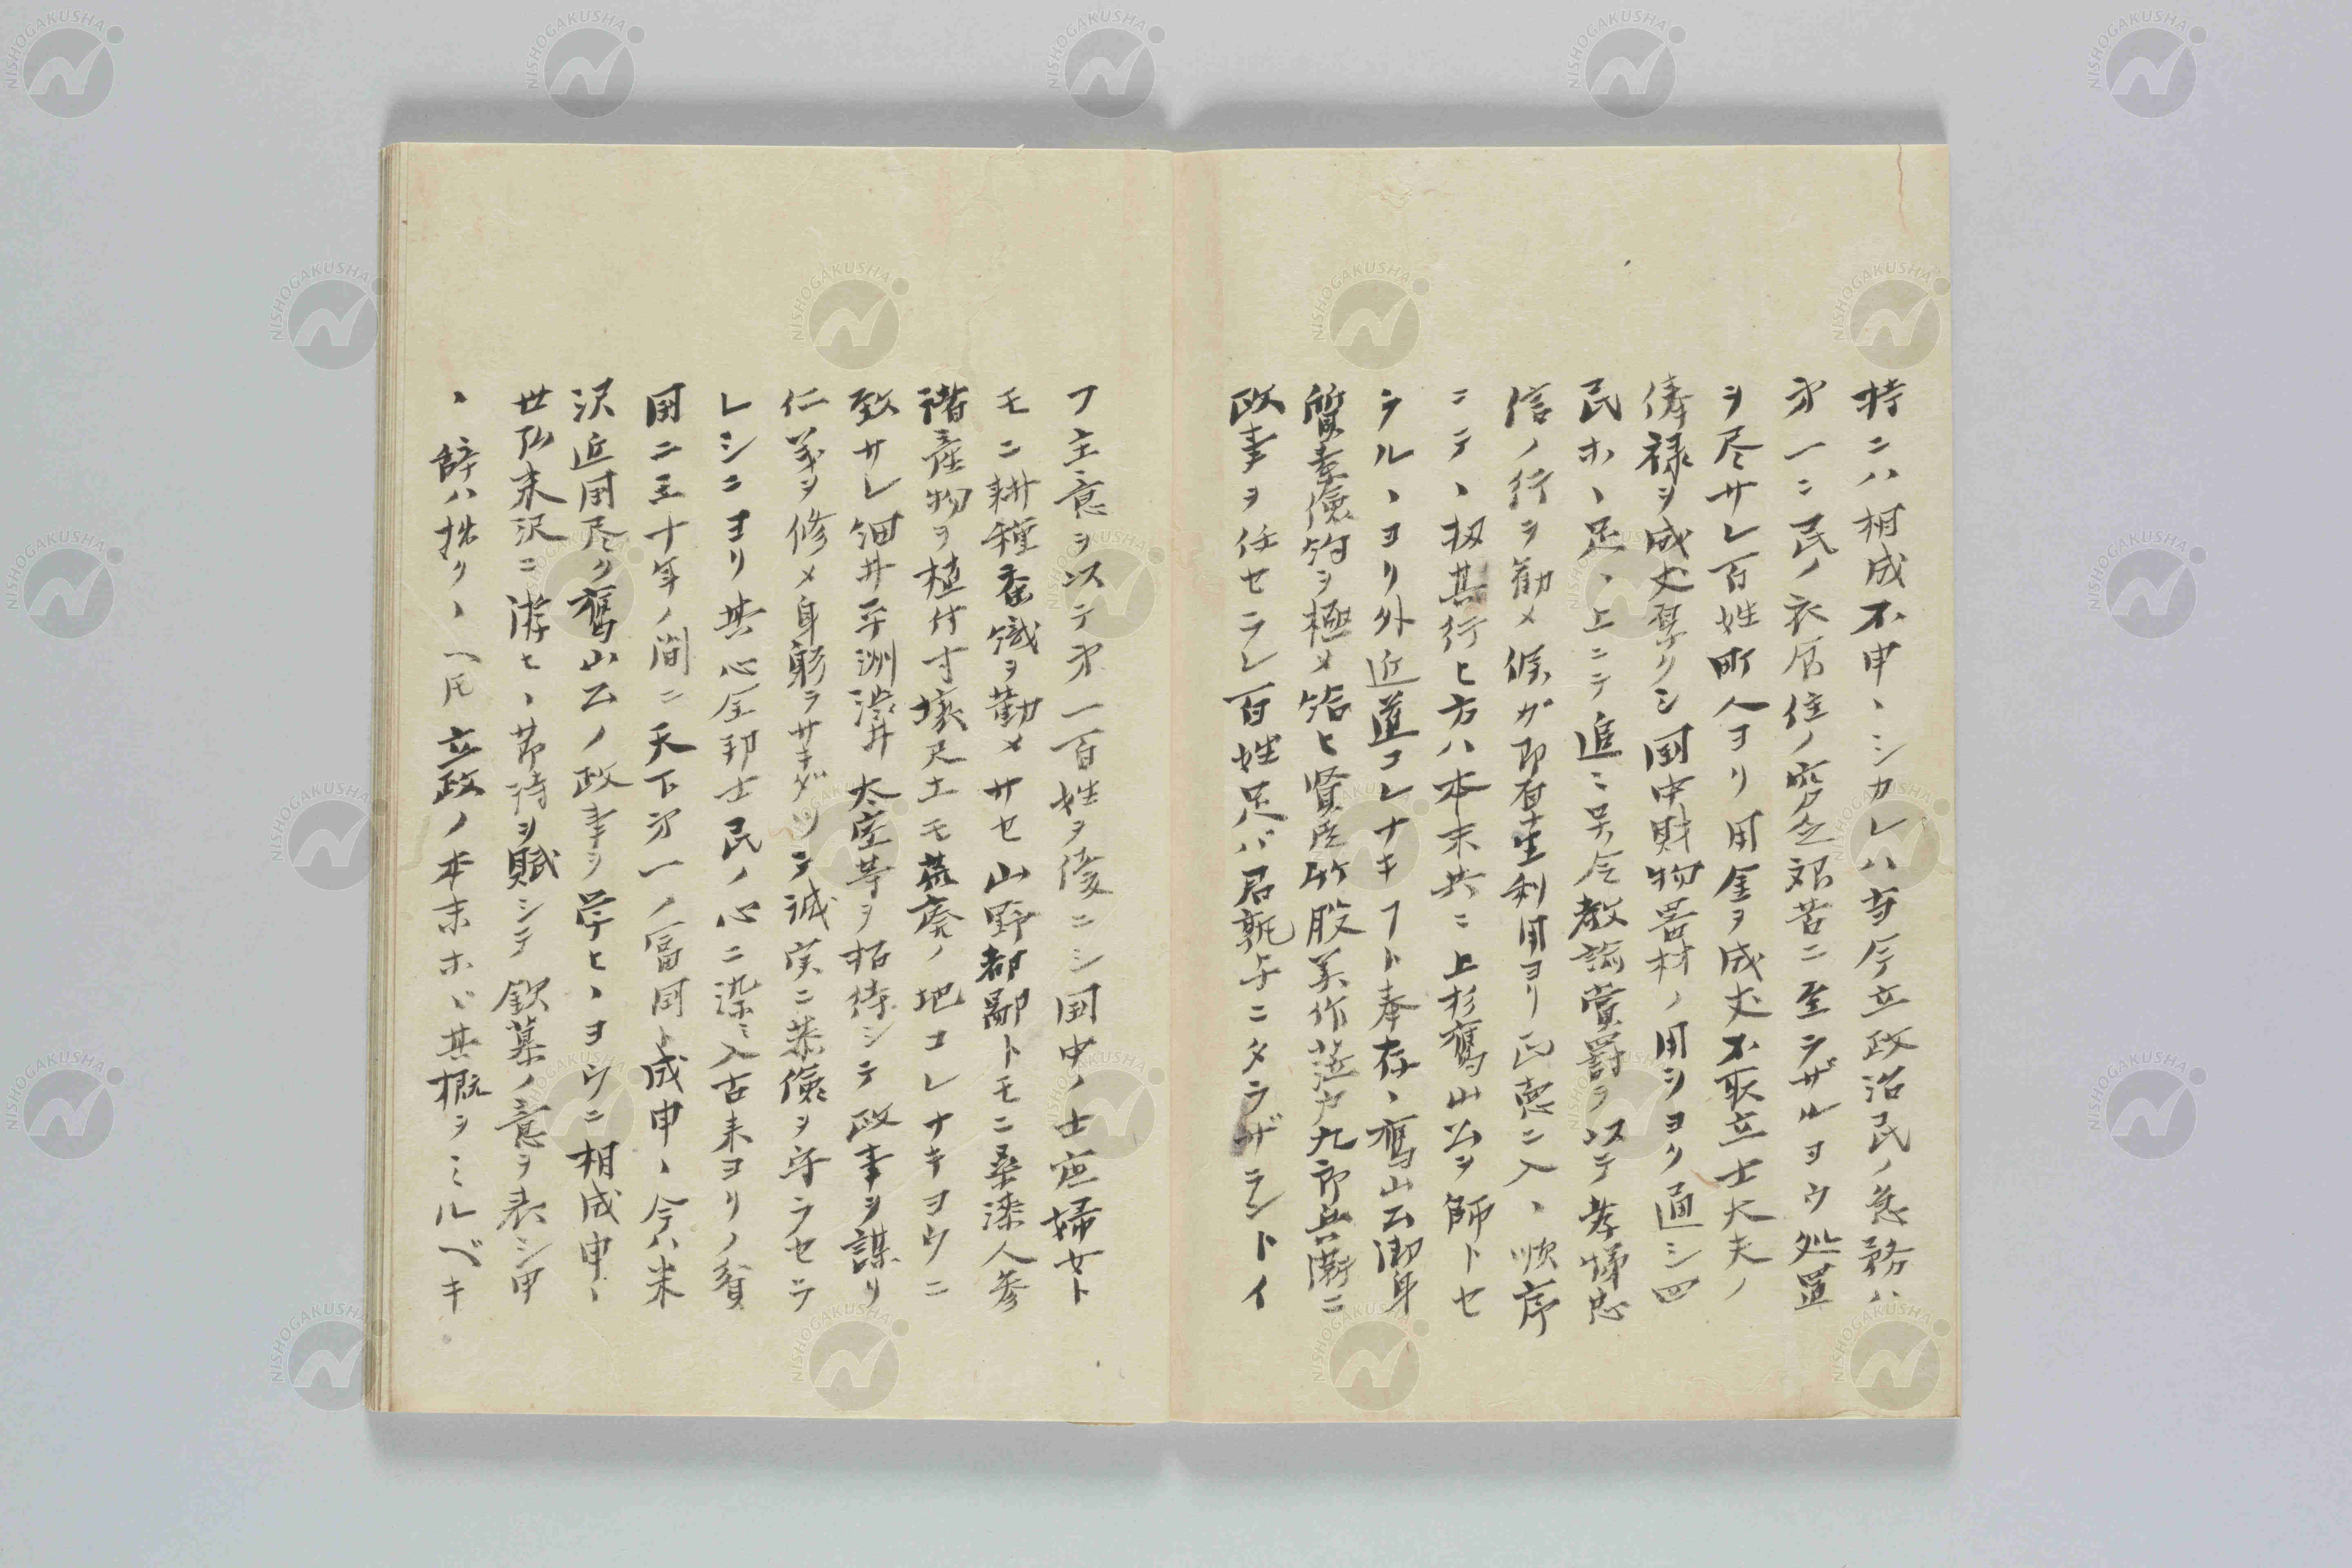 持ニハ相成不申、シカレハ方今立政治民ノ急務ハ
才一ニ民ノ衣居住ノ窮乏艱苦ニ至ラザルヨウ処置
ヲ尽サレ百姓町人ヨリ用金ヲ成丈不取立士大夫ノ
俸禄ヲ成丈厚クシ国中財物器材ノ用ヲヨク通シ四
民ホヽ足、上ニテ追ニ号令教諭賞罰ヲ以テ孝悌忠
信ノ行ヲ勧メ候ガ即厚生利用ヨリ正徳ニ入、順序
ニテ、扨其行ヒ方ハ本末共ニ上杉鷹山公ヲ師トセ
ラル、ヨリ外近道コレナキフト奉存、鷹山公御身
質素倹約ヲ極メ給ヒ賢臣竹股美作莅戸九郎兵衛ニ
政事ヲ任セラレ百姓足バ君孰与ニタラザラントイ
フ主意ヲ以テ才一百姓ヲ優ニシ国中ノ士庶婦女ト
モニ耕種蚕織ヲ勤メサセ山野都鄙トモニ桑漆人参
楮産物ヲ植付寸壌尺土モ荒廃ノ地コレナキヨウニ
致サレ細井平洲渋井太室等ヲ招待シテ政事ヲ謀リ
仁義ヲ修メ身躬ラサキダツテ誠実ニ恭倹ヲ守ラセラ
レシニヨリ其心全邦士民ノ心ニ染ミ入古来ヨリノ貧
国ニ三十年ノ間ニ天下才一ノ富国ト成申、今ハ米
沢近国尽ク鷹山公ノ政事ヲ学ヒ、ヨウニ相成申、
世弘末沢ニ游ヒ、節詩ヲ賦シテ欽慕ノ意ヲ表シ申
、辞ハ拙クヽヘ𪜈立政ノ本末ホヾ其概ヲミルベキ